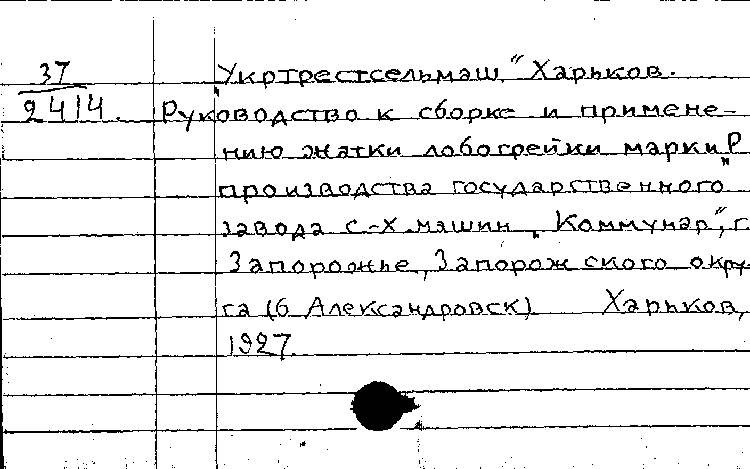 37
2414.
„Укртрестсельмаш" Харьков.
Руководство к сборке и примене-
нию жатки лобогрейки марки „Р"
производства государственного
завода с.-х. машин „Коммунар", г.
Запорожье, Запорожского окру-
га (б. Александровск). Харьков,
1927.